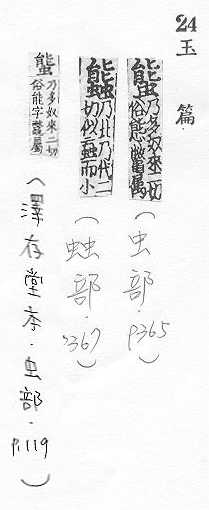 24 玉篇
螚 乃多奴來二切俗能字鼈屬（虫部．p365）
乃北乃代二切似蝱而小（䖵部．p367）
螚 乃多奴來二切俗能字鼈屬（澤存堂本．虫部．p.119）